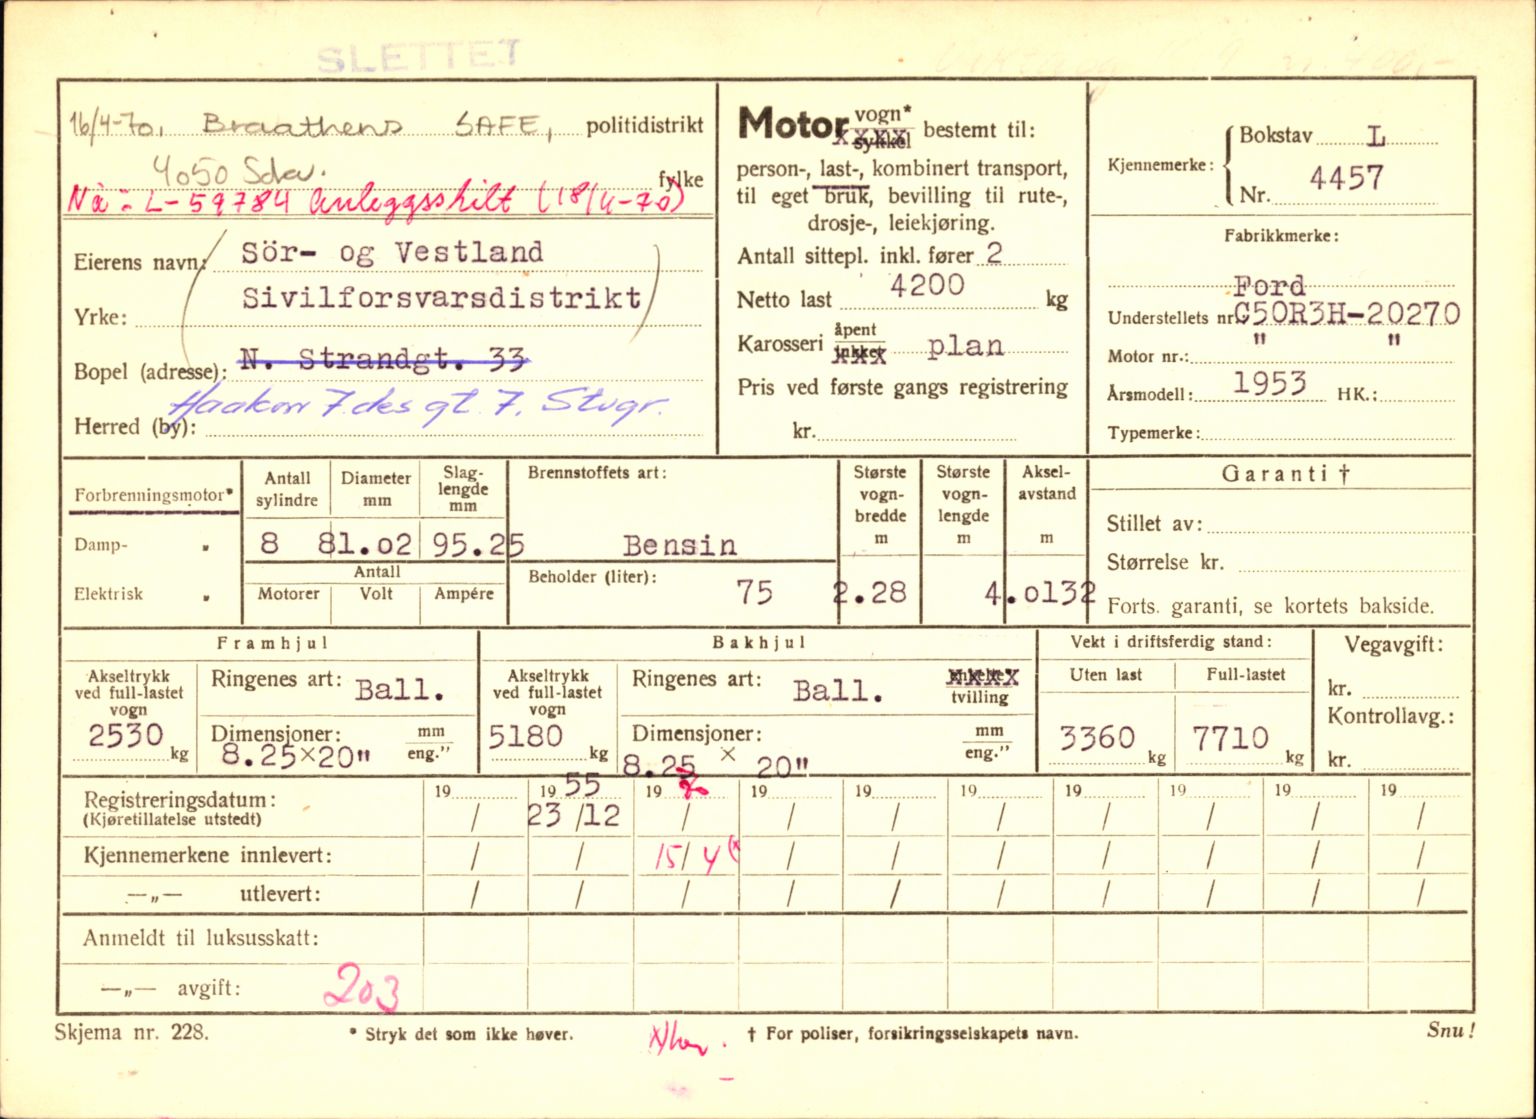 SLETTET
16/4-70, Braathens SAFE, politidistrikt
4050 Sola. fylke
Nå: L-59784 Anleggsskilt (18/4-70)
Eierens navn: Sör- og Vestland
Yrke: Sivilforsvarsdistrikt
Bopel (adresse): N. Strandgt. 33
Haakon 7.des gt. 7. Stvgr.
Herred (by):
Motor vogn* sykkel bestemt til:
person-, last-, kombinert transport,
til eget bruk, bevilling til rute-,
drosje-, leiekjøring.
Antall sittepl. inkl. fører 2
Netto last 4200 kg
Karosseri åpent lukket plan
Pris ved første gangs registrering
kr.
Kjennemerke: Bokstav L
Nr. 4457
Fabrikkmerke:
Ford
Understellets nr. C50R3H-20270
Motor nr.: " "
Årsmodell: 1953 HK.:
Typemerke:
Forbrenningsmotor*
Damp- „
Elektrisk „
Antall sylindre 8
Diameter mm 81.02
Slag-lengde mm 95.25
Antall
Motorer Volt Ampére
Brennstoffets art:
Bensin
Beholder (liter): 75
Største vogn-bredde m 2.28
Største vogn-lengde m
Aksel-avstand m 4.0132
Garanti †
Stillet av:
Størrelse kr.
Forts. garanti, se kortets bakside.
Framhjul
Akseltrykk ved full-lastet vogn 2530 kg
Ringenes art: Ball.
Dimensjoner: mm eng."
8.25×20"
Bakhjul
Akseltrykk ved full-lastet vogn 5180 kg
Ringenes art: Ball. enkelte tvilling
Dimensjoner: mm eng."
8.25 × 20"
Vekt i driftsferdig stand:
Uten last Full-lastet
3360 kg 7710 kg
Vegavgift:
kr.
Kontrollavg.:
kr.
19 19 55 19 70 19 19 19 19 19 19 19
Registreringsdatum: / 23/12 / / / / / / / /
(Kjøretillatelse utstedt)
Kjennemerkene innlevert: / / 15/4 (x / / / / / / /
—„— utlevert: / / / / / / / / / /
Anmeldt til luksusskatt:
—„— avgift: 203
Skjema nr. 228. * Stryk det som ikke høver. † For poliser, forsikringsselskapets navn. Snu!